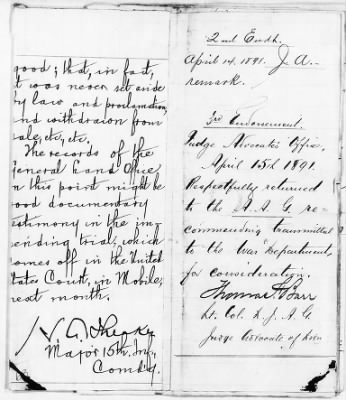 good; that, in fact,
it was never set aside
by law and proclamation,
and withdrawn from
sale, etc, etc.
The records of the
General Land Office
on this point might be
good documentary
testimony in the im-
pending trial, which
comes off in the United
States Court, in Mobile,
next month.
Major 15th Inf.,
Comd'g.
2nd Endt.
April 14, 1891. J. A.—
remark.
3rd Endorsement.
Judge Advocate's Office,
April 15th 1891.
Respectfully returned
to the A. A. G. re-
commending transmittal
to the War Department,
for consideration.
Thomas F. Barr
Lt. Col. & J. A. G.
Judge Advocate of